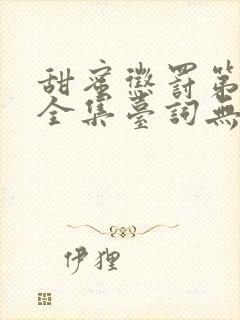 甜蜜懲罰第
全集臺詞無
伊狸